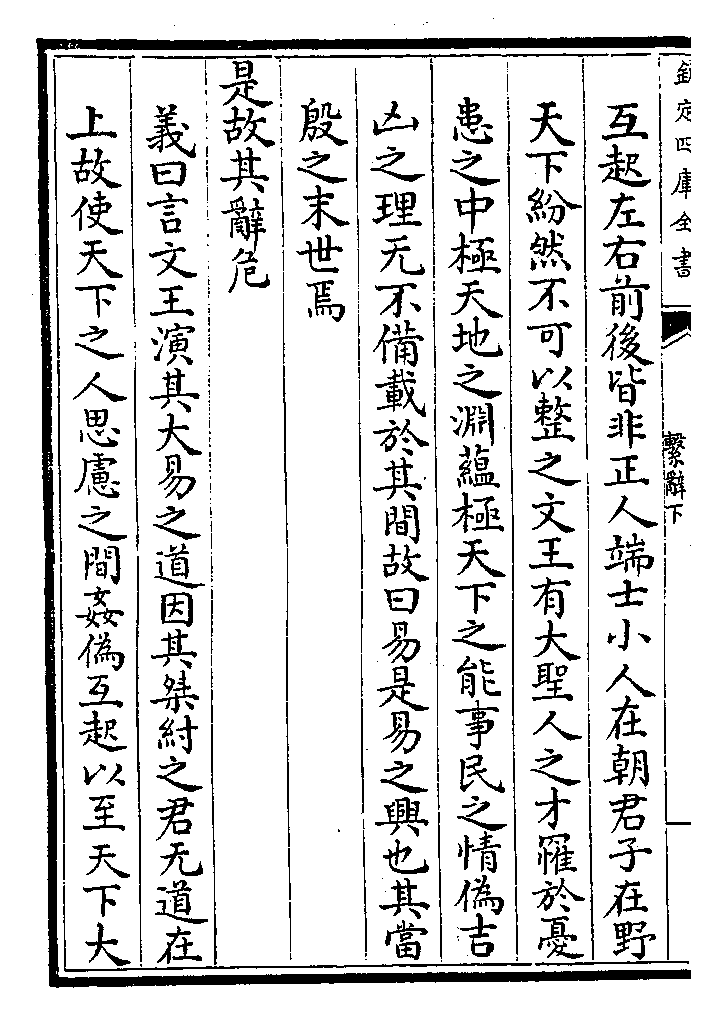 欽定四庫全書
繫辭下
互起左右前後皆非正人端士小人在朝君子在野
天下紛然不可以整之文王有大聖人之才罹於憂
患之中極天地之淵蘊極天下之能事民之情偽吉
凶之理无不備載於其間故曰易是易之興也其當
殷之末世焉
是故其辭危
義曰言文王演其大易之道因其桀紂之君无道在
上故使天下之人思慮之間姦偽互起以至天下大